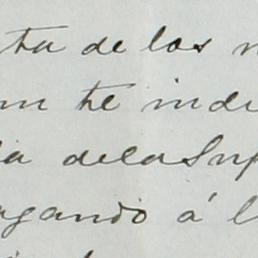 ta de los
te indi
ia dela Sup
gando á l